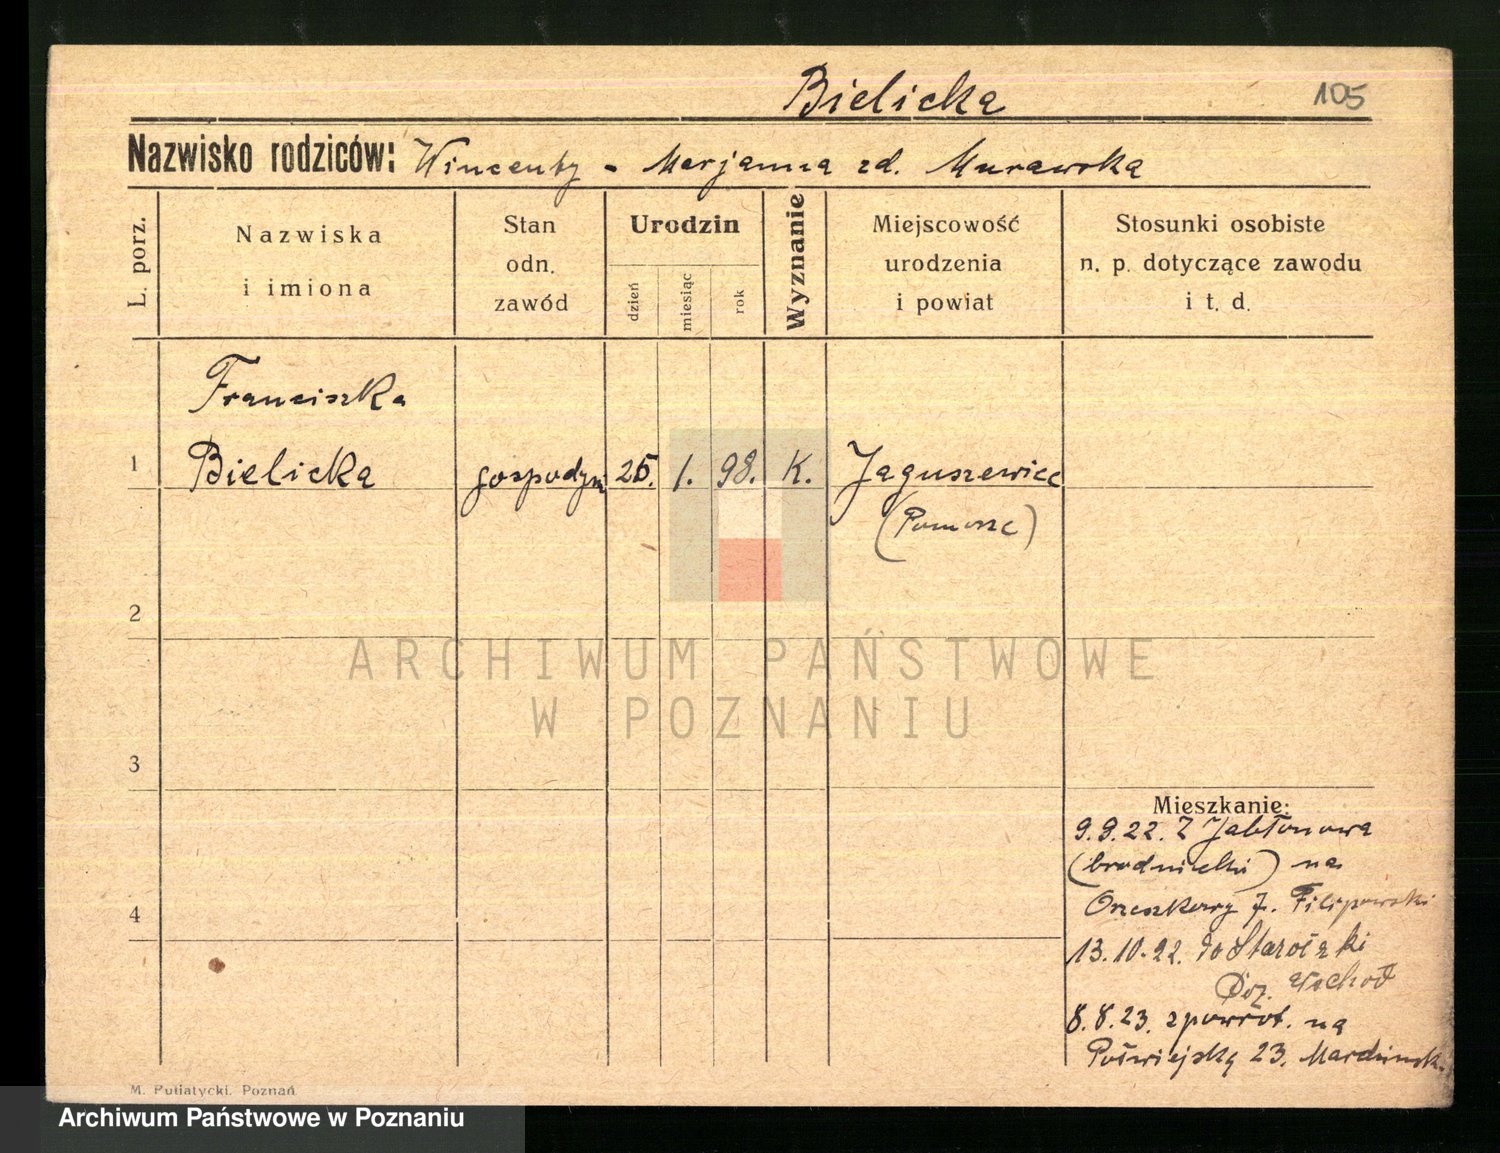 Bielicka 105
Nazwisko rodziców: Wincenty - Marjanna zd. Murawska
L. porz.
Nazwiska
i imiona
Stan
odn.
zawód
Urodzin
dzień
miesiąc
rok
Wyznanie
Miejscowość
urodzenia
i powiat
Stosunki osobiste
n. p. dotyczące zawodu
i t. d.
Franciszka
1 Bielicka gospodyni 25. 1. 98. K. Jaguszewice
(Pomorze)
2
ARCHIWUM PAŃSTWOWE
W POZNANIU
3
Mieszkanie:
9.9.22. Z Jabłonowa
(brodnicki) na
4
Orzeszkowy 7. Filipowski
13.10.22. do Starołęki
Poz. Wschod
8.8.23. zpowrot. na
Poświejską 23.
M. Putiatycki. Poznań
Archiwum Państwowe w Poznaniu